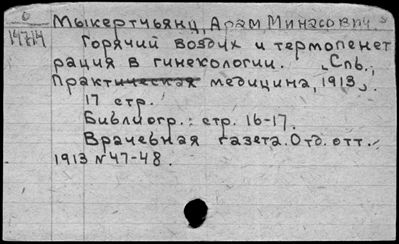 Мыкертчьянц, Арам Минасович.
14714
Горячий воздух и термопенет
рация в гинекологии. Спб.,
Практическая медицина, 1913.
17 стр.
Библиогр.: стр. 16-17.
Врачебная газета. Отд. отт.
1913 №47-48.